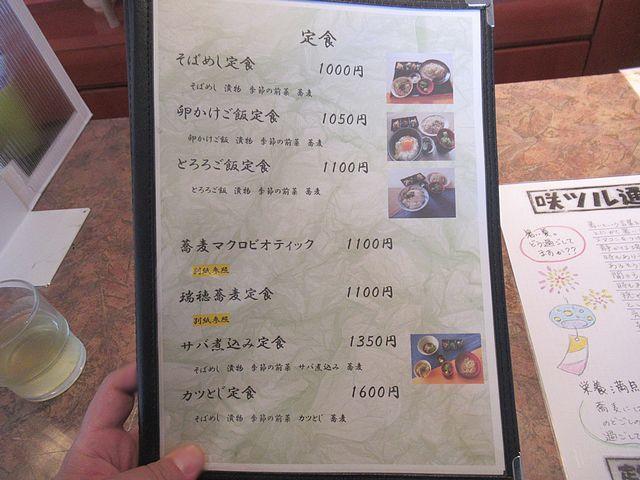 定食
そばめし定食 1000円
そばめし 漬物 季節の前菜 蕎麦
卵かけご飯定食 1050円
卵かけご飯 漬物 季節の前菜 蕎麦
とろろご飯定食 1100円
とろろご飯 漬物 季節の前菜 蕎麦
蕎麦マクロビオティック 1100円
別紙参照
瑞穂蕎麦定食 1100円
別紙参照
サバ煮込み定食 1350円
そばめし 漬物 季節の前菜 サバ煮込み 蕎麦
カツとじ定食 1600円
そばめし 漬物 季節の前菜 カツとじ 蕎麦
咲ツル通
暑い夏、
どう過ごして
ますか??
栄養満点